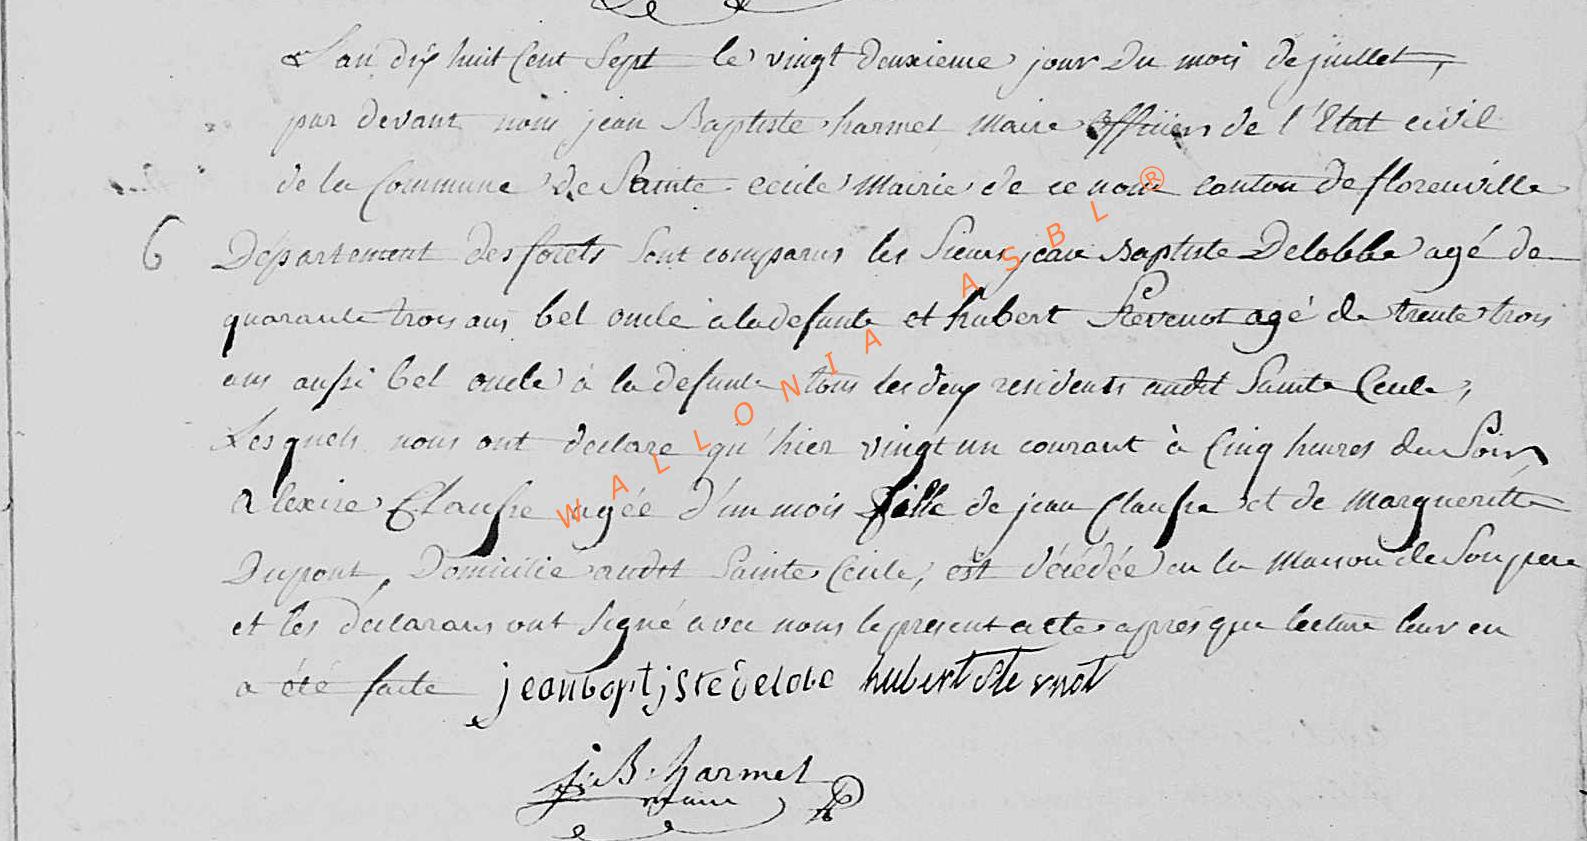 L'an dix huit Cent Sept le vingt deuxieme jour du mois de juillet,
par devant nous jean Baptiste harmel Maire Officier de l'Etat civil
de la Commune de Sainte cecile Mairie de ce nom canton de florenville
6 Departement des forets Sont comparus les Sieurs jean Baptiste Delobbe agé de
quarante trois ans bel oncle a la defunte et hubert Stevenot agé de trente trois
ans aussi bel oncle à la defunte tous les deux residents audit Sainte Cecile,
Lesquels nous ont declare qu'hier vingt un courant à Cinq heures du Soir
Alexise Clausse agée d'un mois fille de jean Clausse et de Margueritte
Dupont, Domicilié audit Sainte Cecile, est décédée en la Maison de Son pere
et les déclarans ont Signé avec nous le present acte apres que lecture leur en
a été faite jeanbaptjste delobe hubert Ste vnot
j. B. harmel
maire
WALLONIA ASBL ®